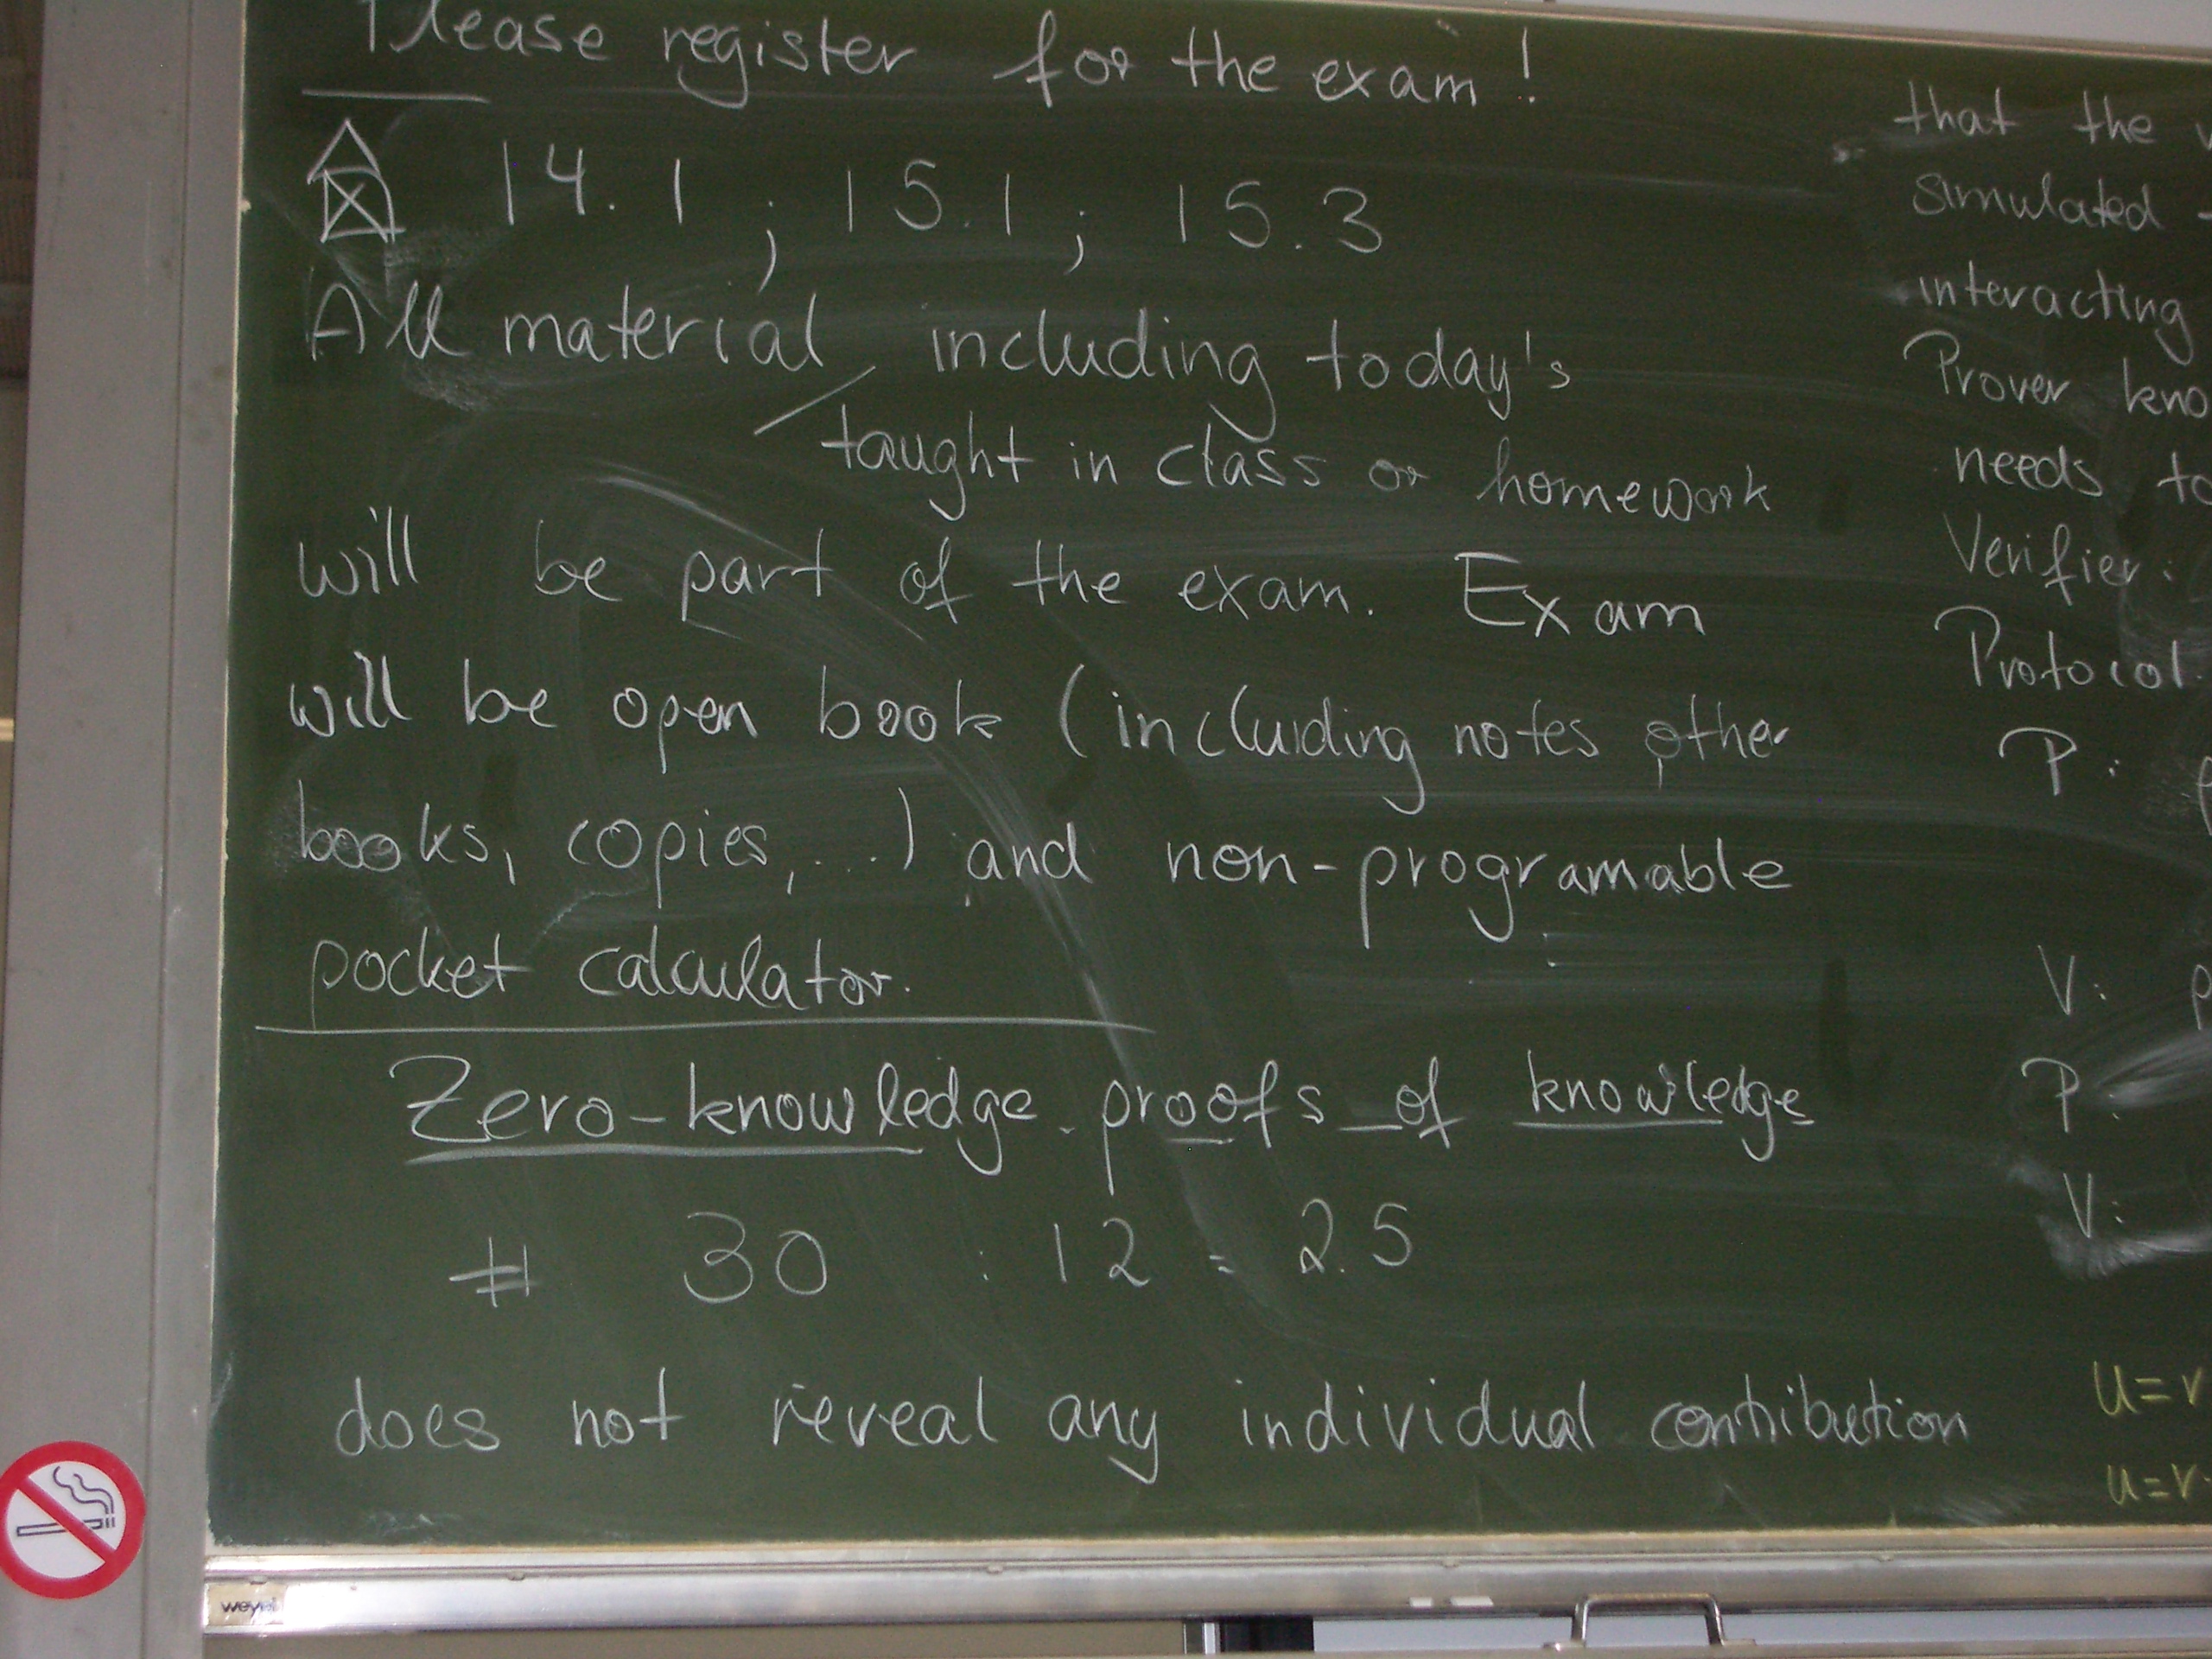 Please register for the exam!
14.1 ; 15.1 ; 15.3
All material, including today's
taught in class or homework
will be part of the exam. Exam
will be open book (including notes, other
books, copies, ...) and non-programable
pocket calculator.
Zero-knowledge proofs of knowledge
# 30 : 12 = 2.5
does not reveal any individual contribution
that the
simulated
interacting
Prover
needs
Verifier:
Protocol
P:
V:
P:
V:
u=r
u=r
weyel